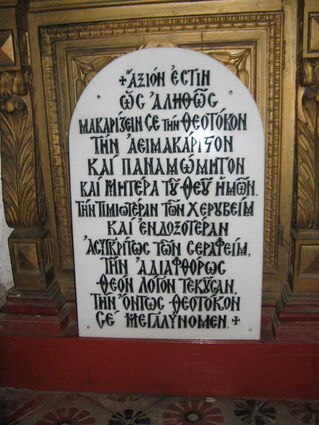 + ἈΞΙΌΝ ἘΣΤΙΝ
ὩΣ ἈΛΗΘῶΣ
ΜΑΚΑΡΊΖΕΙΝ ΣΕ ΤΗΝ ΘΕΟΤΌΚΟΝ
ΤΗΝ ἈΕΙΜΑΚΆΡΙΣΤΟΝ
ΚΑΙ ΠΑΝΑΜΏΜΗΤΟΝ
ΚΑΙ ΜΗΤΈΡΑ ΤȢ͂ ΘΕȢ͂ ἩΜῶΝ.
ΤΗΝ ΤΙΜΙΩΤΈΡΑΝ ΤῶΝ ΧΕΡȢΒΕΊΜ
ΚΑΙ ἘΝΔΟΞΟΤΈΡΑΝ
ἈΣΥΓΚΡΊΤΩΣ ΤῶΝ ΣΕΡΑΦΕΊΜ,
ΤΗΝ ἈΔΙΑΦΘΌΡΩΣ
ΘΕΟΝ ΛΌΓΟΝ ΤΕΚȢ͂ΣΑΝ,
ΤΗΝ ὌΝΤΩΣ ΘΕΟΤΌΚΟΝ
ΣΈ ΜΕΓΑΛΎΝΟΜΕΝ. +